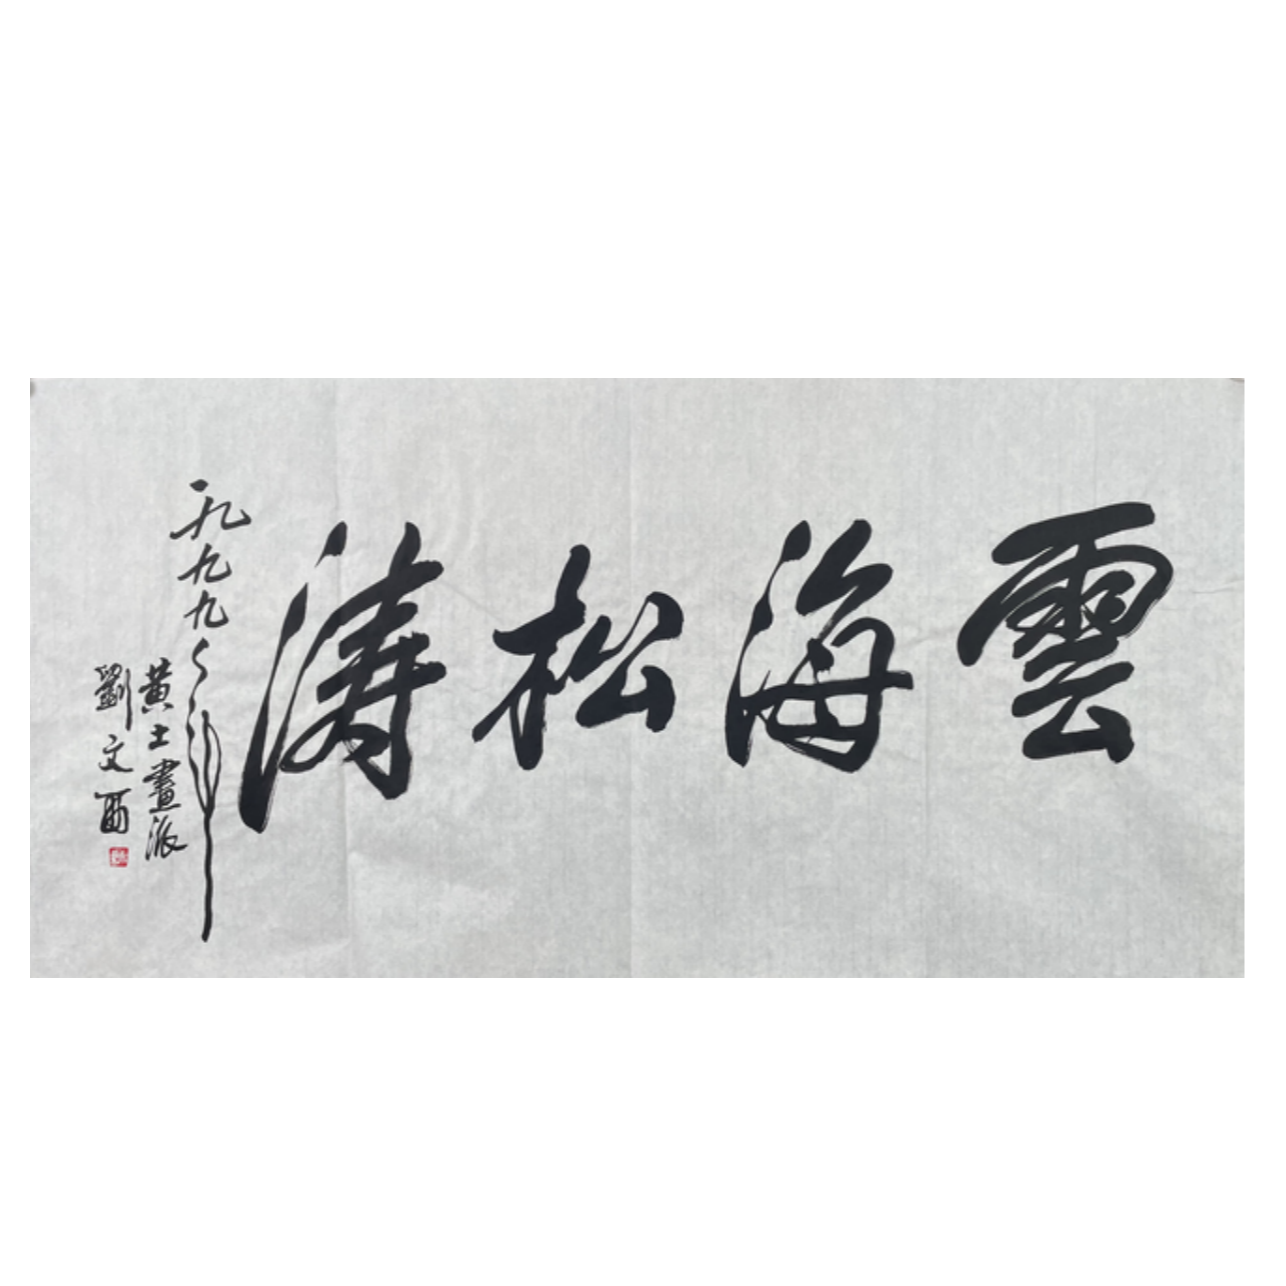 雲海松涛
一九九九年
黄土畫派
劉文西